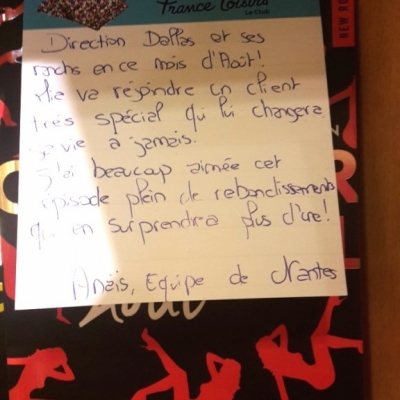 France Loisirs
Le Club
Direction Dallas et ses
ranchs en ce mois d'Août!
Mia va rejoindre un client
très spécial qui lui changera
sa vie a jamais.
J'ai beaucoup aimée cet
épisode plein de rebondissements
qui en surprendra plus d'une!
Anaïs, Equipe de Nantes
Août
NEW RO